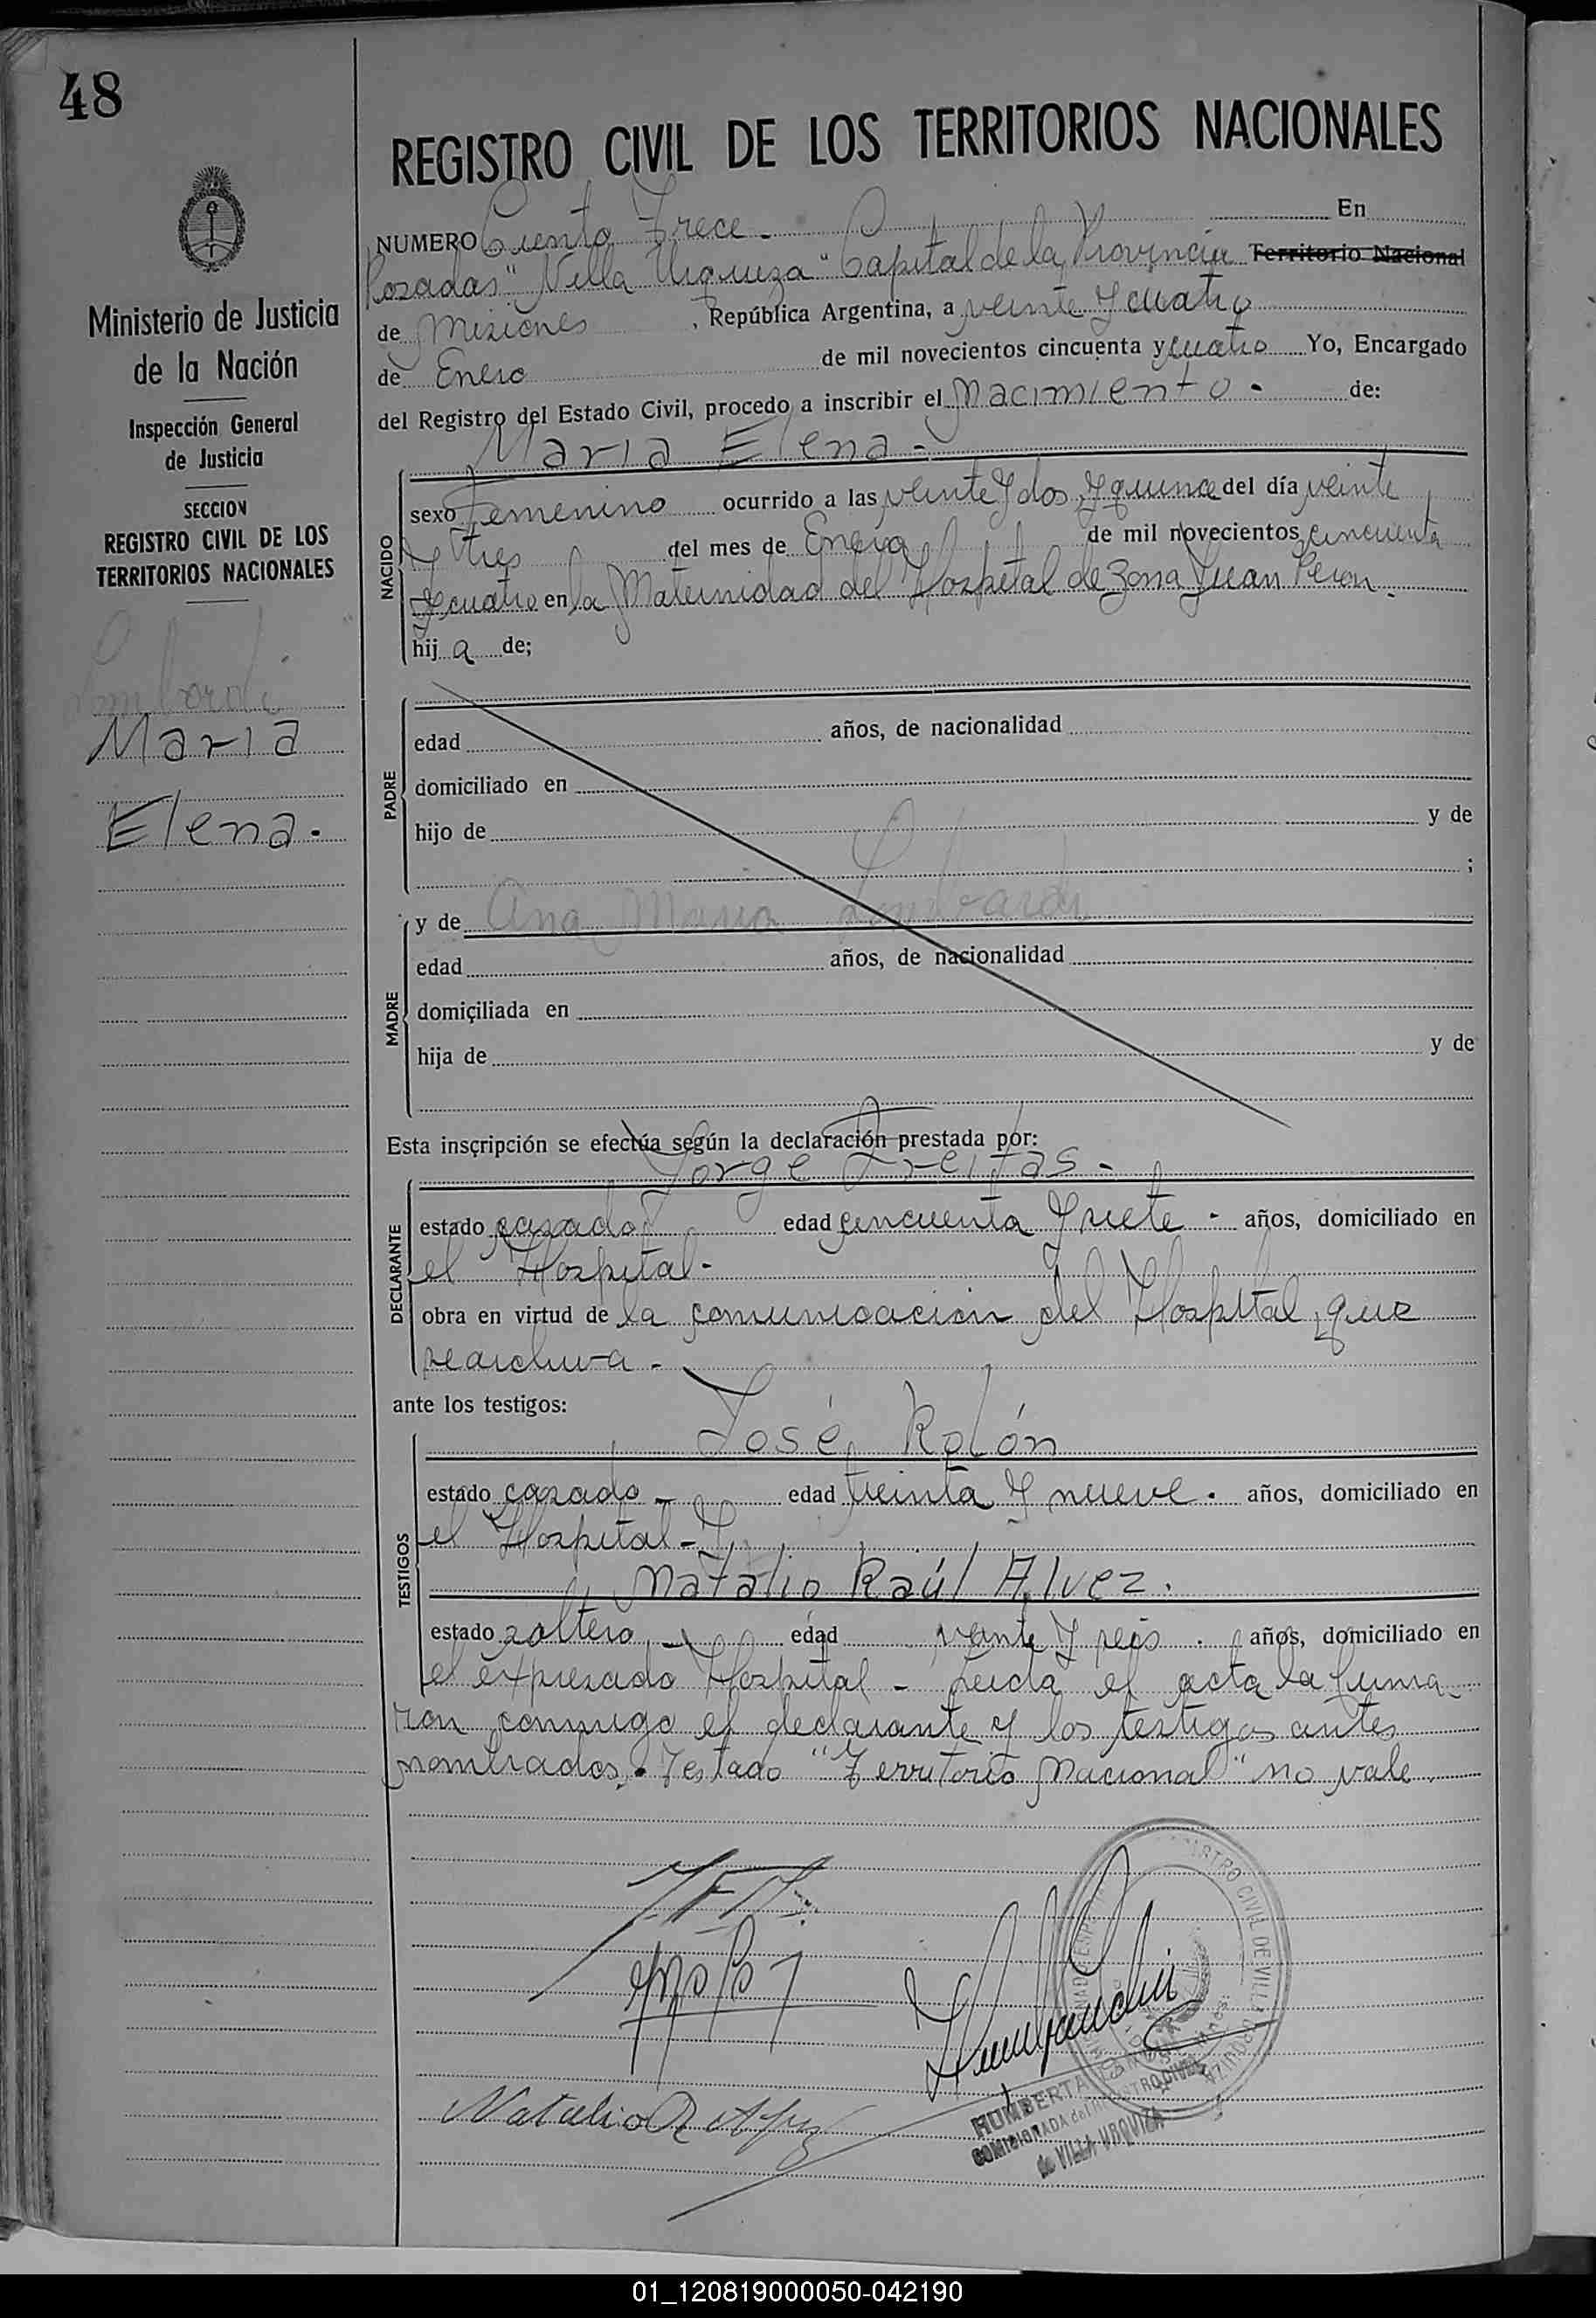 48
Ministerio de Justicia
de la Nación
Inspección General
de Justicia
SECCION
REGISTRO CIVIL DE LOS
TERRITORIOS NACIONALES
Lombardi
Maria
Elena.
REGISTRO CIVIL DE LOS TERRITORIOS NACIONALES
NUMERO Ciento Trece - En
Posadas "Villa Urquiza" Capital de la Provincia Territorio Nacional
de Misiones, República Argentina, a veinte y cuatro
de Enero de mil novecientos cincuenta y cuatro Yo, Encargado
del Registro del Estado Civil, procedo a inscribir el Nacimiento - de:
Maria Elena -
NACIDO
sexo Femenino ocurrido a las veinte y dos y quince del día veinte
y tres del mes de Enero de mil novecientos cincuenta
y cuatro en la Maternidad del Hospital de Zona Juan Peron -
hij a de;
PADRE
edad años, de nacionalidad
domiciliado en
hijo de y de
;
MADRE
y de Ana Maria Lombardi
edad años, de nacionalidad
domiciliada en
hija de y de
Esta inscripción se efectúa según la declaración prestada por:
Jorge Freitas -
DECLARANTE
estado casado edad cincuenta y siete - años, domiciliado en
el Hospital -
obra en virtud de la comunicacion del Hospital que
se archiva -
ante los testigos:
José Rolón
TESTIGOS
estado casado - edad treinta y nueve - años, domiciliado en
el Hospital - y
Natalio Raúl Alvez.
estado soltero - edad veinte y seis - años, domiciliado en
el expresado Hospital - Leida el acta la firma
ron conmigo el declarante y los testigos antes
nombrados. Testado "Territorio Nacional" no vale
Natalio R Alvez
REGISTRO CIVIL DE VILLA URQUIZA
COMISIONADA del REGISTRO CIVIL
de VILLA URQUIZA
01_120819000050-042190